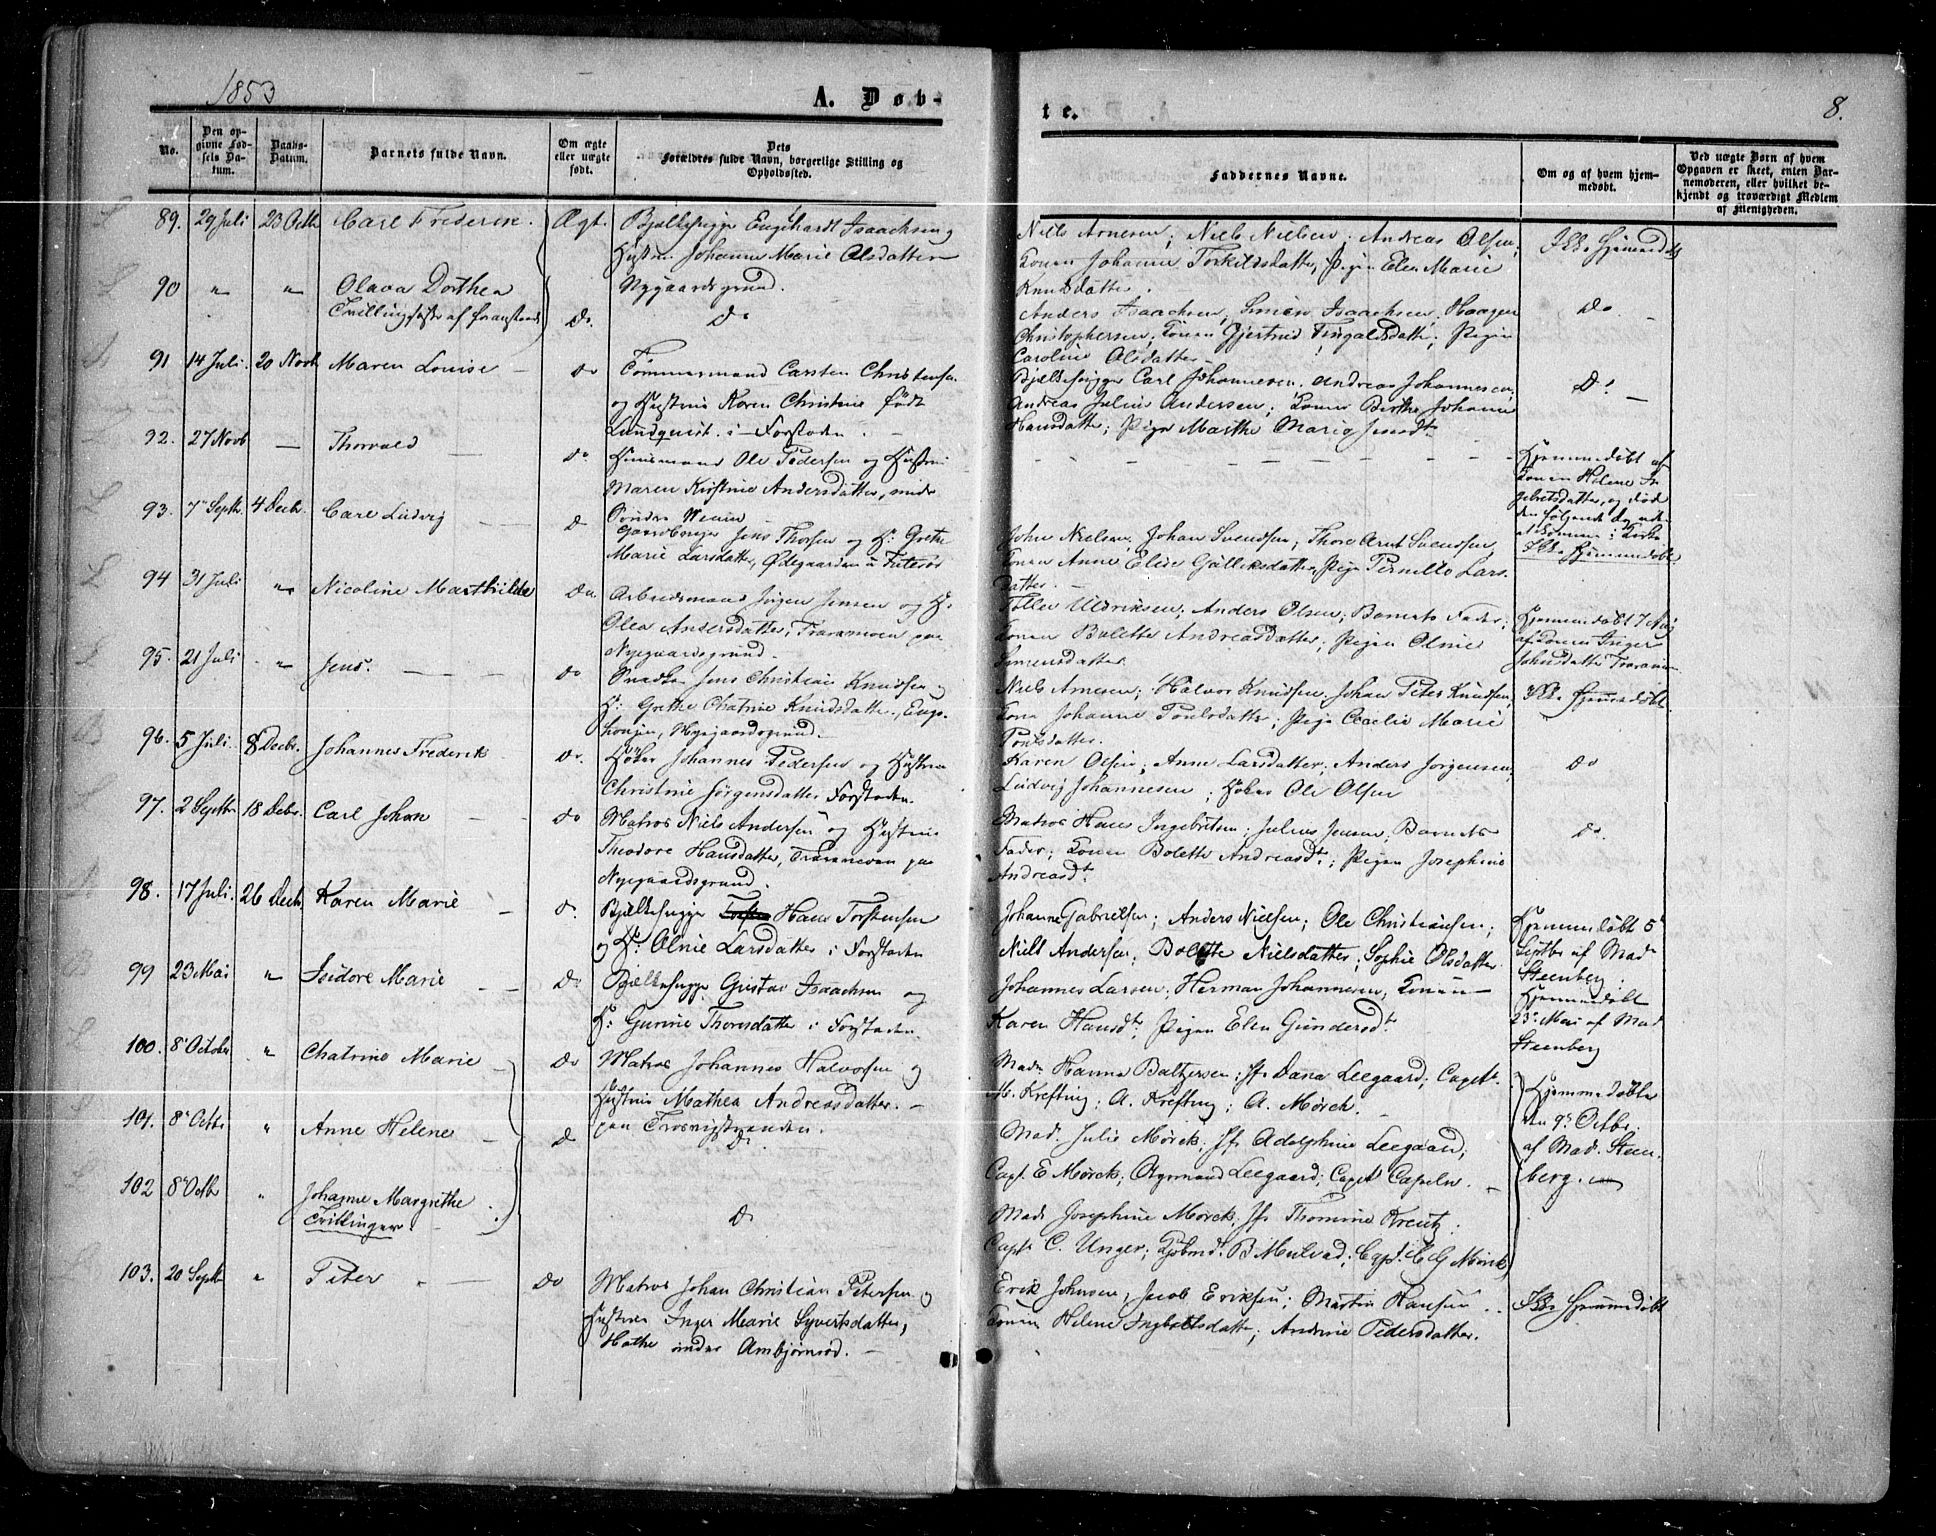 1853
A. Døb-
te.
8.
No.
Den op-
givne Fød-
sels Da-
tum.
Daabs-
Datum.
Barnets fulde Navn.
Om ægte
eller uægte
født.
Dets
Forældres fulde Navn, borgerlige Stilling og
Opholdssted.
Faddernes Navne.
Om og af hvem hjem-
medøbt.
Ved uægte Børn af hvem
Opgaven er skeet, enten Bar-
nemoderen, eller hvilket be-
kjendt og troværdigt Medlem
af Menigheden.
89. 29 Juli 23 Octb Carl Frederik. Ægt. Bjælkehugger Engebardt Isaachsen og
Hustru Johanne Marie Olsdatter
Nygaardsgrund.
Niels Arnesen; Niels Nielsen; Andreas Olsen;
Konen Johanne Torkildsdatter, Pigen Elen Marie
Knudsdatter.
Ikke hjemmedøbt
90 " " Olava Dorthea
Tvillingsøster af foranstaaende
Do. Do
Anders Isaachsen, Simon Isaachsen, Haagen
Christophersen; Konen Gjertrud Tingalsdatter; Pigen
Caroline Olsdatter
Do
91 14 Juli. 20 Novb Maren Louise — Do Tømmermand Carsten Christensen
og Hustru Karen Christine født
Lundquist. i Forstaden. —
Bjælkehugger Carl Johannesen. Andreas Johannesen;
Andreas Julius Andersen; Konen Berthe Johanne
Hansdatter; Pigen Marthe Marie Jensdt
Do
92. 27 Novb — Thorvald — Do Huusmand Ole Pedersen og Hustru
Maren Kirstine Andersdatter, under
Søndre
Hjemmedøbt af
Konen Helene In-
gebretsdatter, og døde
den følgende dag uden
at komme i Kirke
93. 7 Septb. 4 Decb. Carl Ludvig — Do Gaardbruger Jens Thorsen og H: Grethe
Marie Larsdatter, Ødegaarden
John Nielsen, Johan Svendsen; Thore Svendsen,
Konen Anne Elise Gulliksdatter, Pigen Pernille Lars-
datter. —
Ikke hjemmedøbt
94 31 Juli " Nicoline Marthilde Do. Arbeidsmand Jørgen Jensen og H:
Olea Andersdatter, Traramoen paa
Nygaardsgrund.
Tollev Uldriksen; Anders Olsen; Barnets Fader;
Konen Bolette Andreasdatter; Pigen Oline
Simensdatter.
Hjemmedøbt
af Konen Inger
Johnsdatter
95. 21 Juli " Jens. — Do Snedker Jens Christian Knudsen og
H: Grethe Chatrine Knudsdatter.
Nygaardsgrund.
Niels Arnesen; Halvor Knudsen, Johan Peter Knudsen,
Konen Johanne Poulsdatter; Pigen Cecilie Marie
Poulsdatter.
Ikke hjemmedøbt
96. 5 Juli. 8 Decbr. Johannes Frederik Do. Høker Johannes Pedersen og Hustru
Christine Jørgensdatter Forstaden.
Karen Olsen; Anne Larsdatter; Anders Jørgensen;
Ludvig Johannesen; Høker Ole Olsen
Do
97. 2 Septb 18 Decbr. Carl Johan — Do Matros Niels Andersen og Hustru
Theodore Hansdatter, Traramoen paa
Nygaardsgrund.
Matros Hans Ingebretsen; Julius Jensen; Barnets
Fader; Konen Bolette Andreasdt; Pigen Josephine
Andreasdt
Do.
98. 17 Juli. 26 Decb. Karen Marie — Do. Bjælkehugger Hans Torstensen
og H: Oline Larsdatter i Forstaden
Johanne Gabrielsen; Anders Nielsen; Ole Christiansen;
Niels Andersen; Bolette Nielsdatter; Sophie Olsdatter
Hjemmedøbt 5
Septbr af Mad
Steenberg
99 23 Mai " Isidore Marie — Do Bjælkehugger Gustav Isaachsen og
H: Gunnie Thorsdatter i Forstaden
Johannes Larsen; Herman Johannesen, Konen
Karen Hansdt. Pigen Elen Gundersdt
Hjemmedøbt
23 Mai af Mad
Steenberg
100. 8 October " Chatrine Marie Do Matros Johannes Halvorsen og
Hustru Mathea Andreasdatter. —
paa Trosvigstranden.
Madm Hanna Baltzersen; Jf. Dana Leegaard; Captt
M. Krefting; A. Krefting; A. Mørch. —
Hjemmedøbte
den 9 Octbr.
af Mad. Steen-
berg.
101. 8 Octb " Anne Helene — Do Do.
Mad. Julie Mørch; Jf. Adolphine Leegaard;
Capt. E. Mørch; Leegaard; Captt Capeln. —
102 8 Octb " Johanne Margrethe
Trillinger.
Do
Mad. Josephine Mørch, Jf. Thomine Kreutz.
Capt. C. Unger; Kjøbmd. B. Mulvad; Capt. Mørch
103. 20 Septb " Peter " — Do Matros Johan Christian Petersen og
Hustru Inger Marie Syvertsdatter,
Hothe under Ambjørnrød. —
Erik Johnsen, Jacob Eriksen; Martin Hansen
Konen Helene Ingbrettsdatter; Andrine Pedersdatter.
Ikke hjemmedøbt